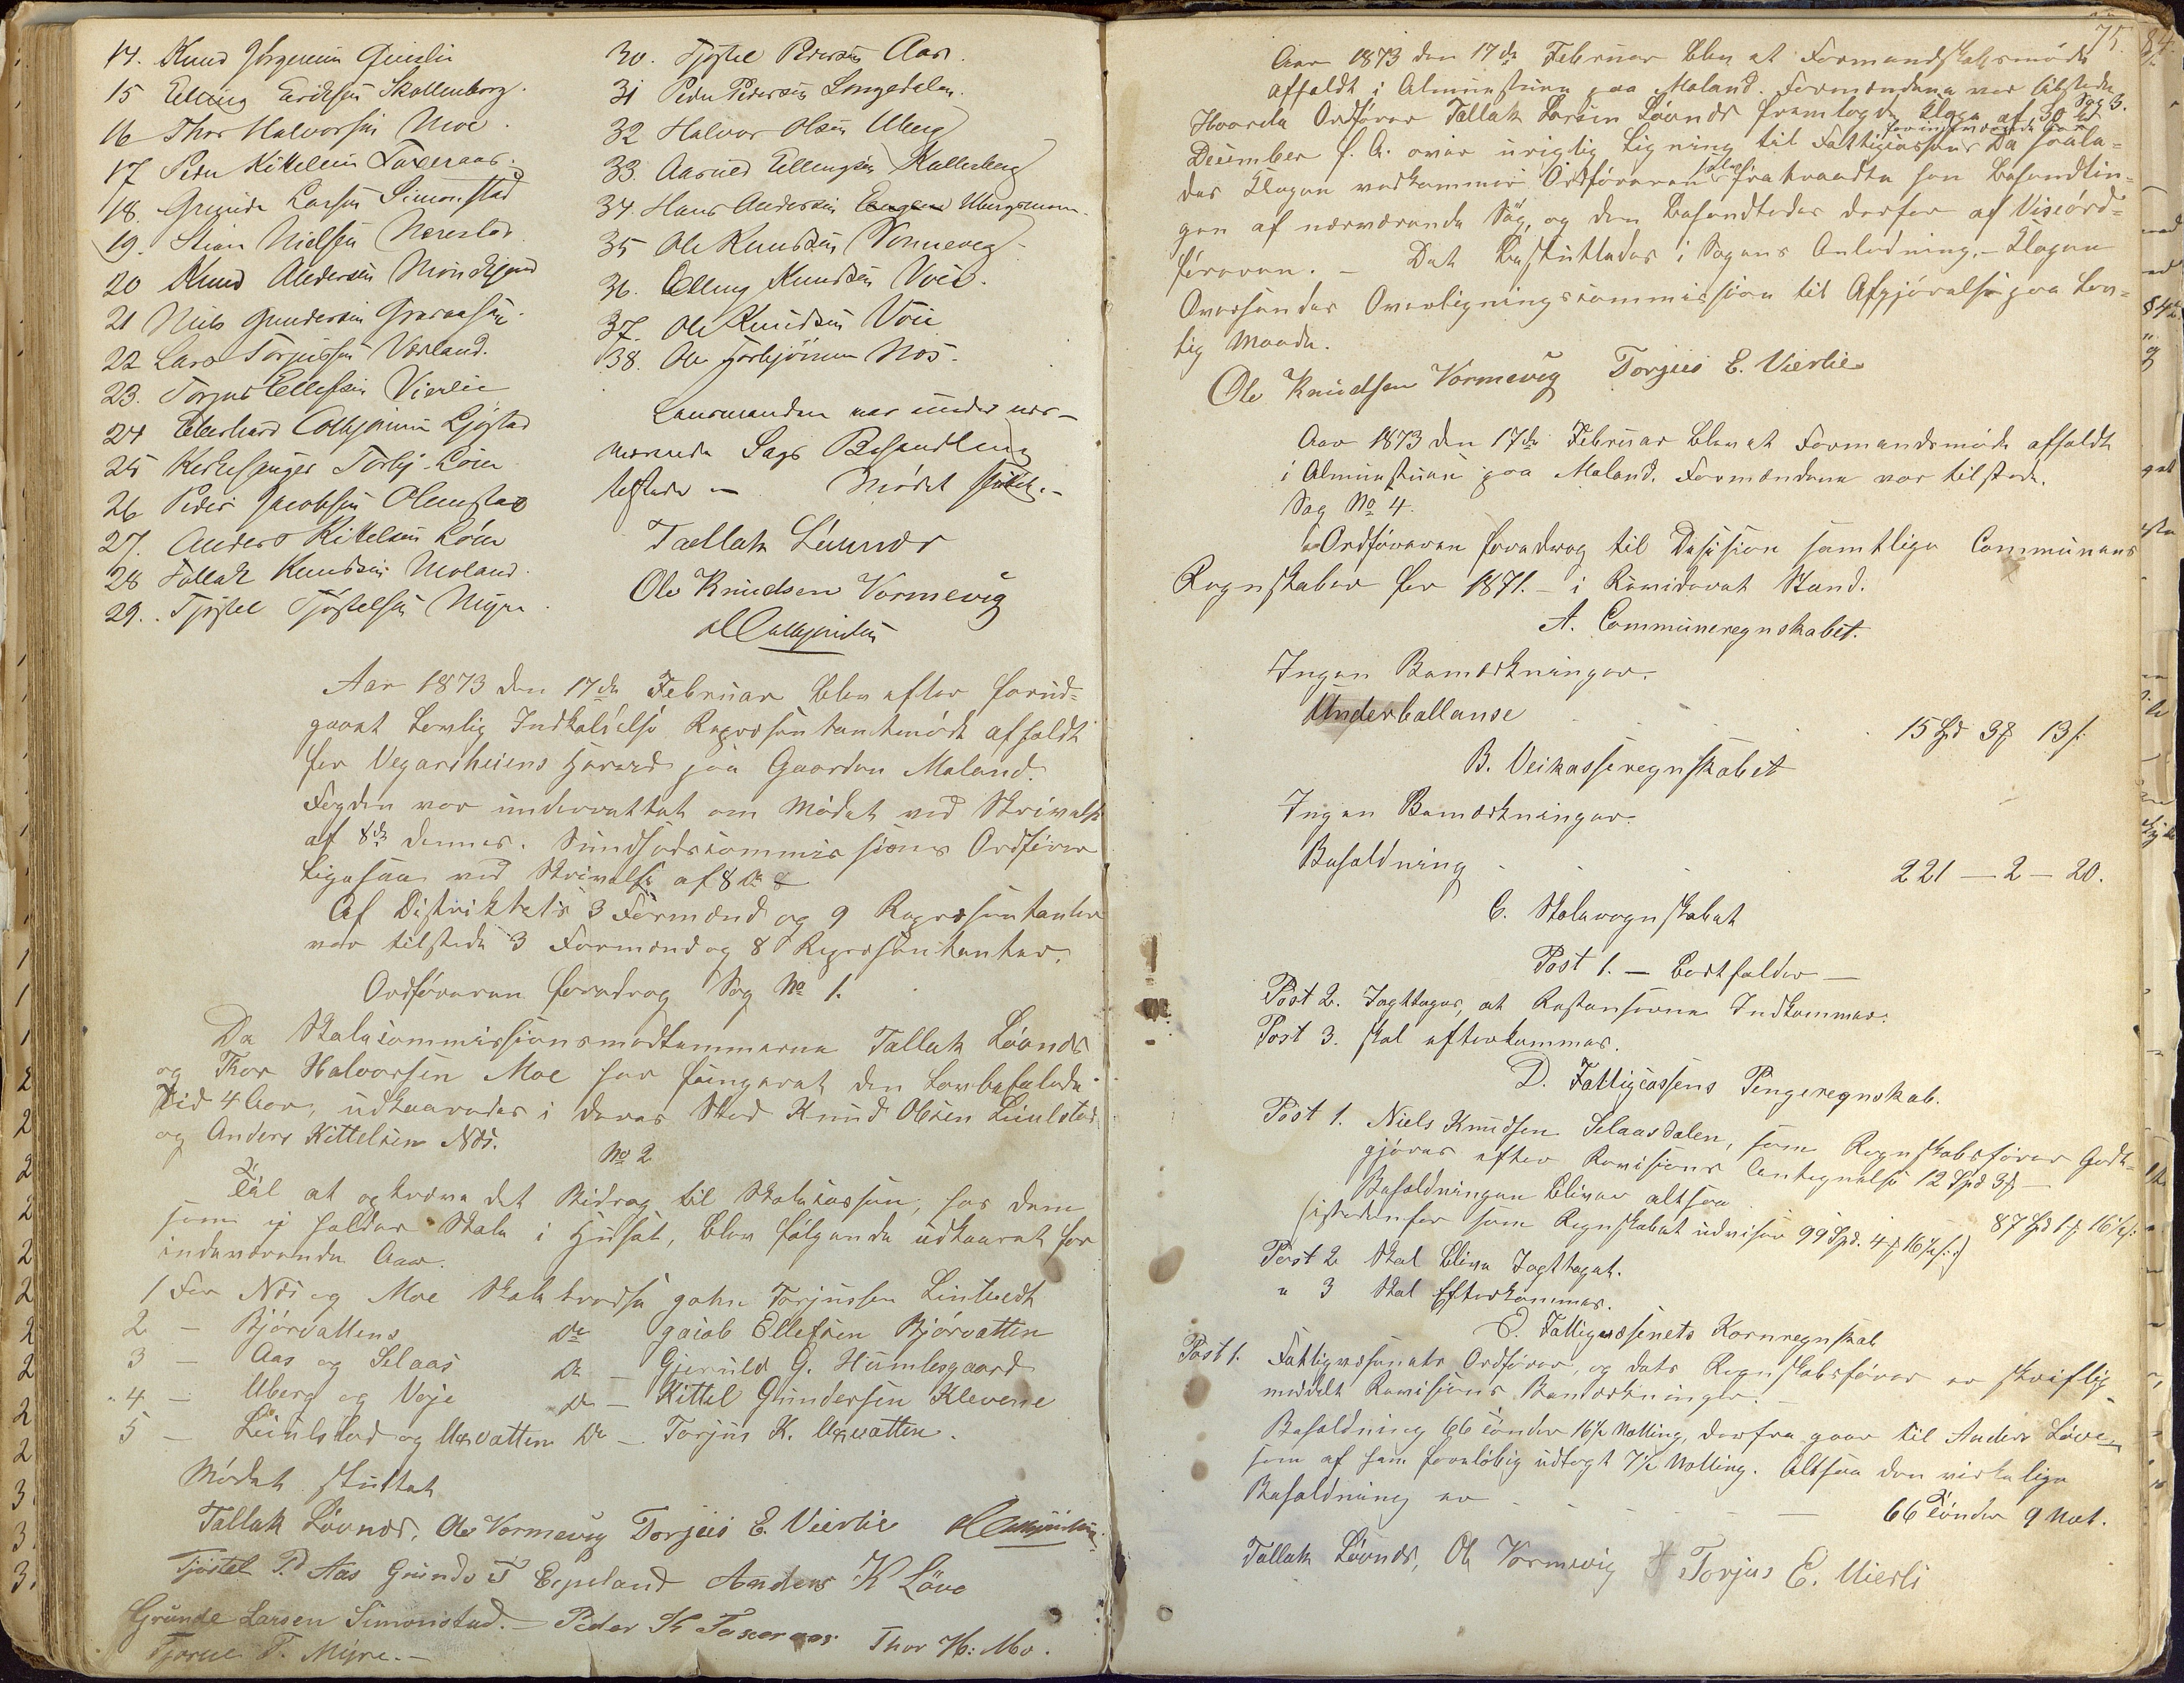 14. Knud Jörgensen Gjerslie
15 Elling Eriksen Skollenborg.
16 Thor Halvorsen Moe.
17 Peder Kittelsen Taxeraas.
18. Grunde Larsen Simonstad
19. Stian Nielsen Nærestad
20 Knud Andersen
21 Niels Gundersen
22 Lars Torjussen Værland.
23. Torjus Ellefsen Vierlie
24 Eberhard Ljøstad
25 Kirkesanger Torbj. Löin
26 Peder Jacobsen Olimstad
27. Anders Kittelsen Löin
28 Tallak Knudsen Moland.
29. Tjöstel Tjöstelsen Myra.
30. Tjöstel Pedersen Aas.
31 Peder Pedersen Lingedalen.
32 Halvor Olsen Uberg
33. Aasuld Ellingsen Skollenberg
34. Hans Andersen Ubergsmoen.
35 Ole Knudsen Vormevig
36. Elling Knudsen Voie.
37. Ole Knudsen Voie
38. Ole Torbjörnsen Nös.
Lensmanden var under nær-
værende Sags Behandling
tilstede — Mödet sluttet. —
Tallak Löunes
Ole Knudsen Vormevig
Aar 1873 den 17de Februar blev efter forud-
gaaet Lovlig Indkaldelse Repræsentantmöde afholdt
for Vegarsheiens Herred paa Gaarden Moland.
Fogden var underrettet om Mödet ved Skrivelse
af 8de dennes. Sundhedscommissions Ordförer
ligesaa ved Skrivelse af 8 ds
Af Distriktets 3 Formænd og 9 Repræsentanter
var tilstede 3 Formænd og 8 Repræsentanter.
Ordföreren foredrog Sag No 1.
Da Skolecommissionsmedlemmerne Tallak Löunes
og Thor Halvorsen Moe har fungeret den Lovbefalede
Tid 4 Aar, udkaaredes i deres Sted Knud Olsen Liulstad
og Anders Kittelsen Nös.
No 2
Til at opkræve det Bidrag til Skolekassen, for dem
som ej holder Skole i Huset, blev fölgende udkaaret for
indeværende Aar.
1 For Nös og Moe Skole kredse John Torjussen Lindtvedt
2 — Björvattens do Jacob Ellefsen Björvatten
3 — Aas og Selaas do — Gjeruld G. Humlesgaard
4 — Uberg og Voje do — Kittel Gundersen Klevene
5 — Liulstad og Uxvatten do — Torjus K. Uxvatten.
Mödet sluttet
Tallak Löunes, Ole Vormevig Torjus E. Vierlie
Tjöstel P. Aas Grunde T Espeland Anders K Löve
Grunde Larsen Simonstad. — Peder K Taxeraas Thor H: Mo.
Tjöstel T. Myre. —
75.
84.
Aar 1873 den 17de Februar blev et Formandskabsmöde
afholdt i Almueskuen paa Moland. Formændene var tilstede
Sag 3.
Hvorda Ordförer Tallak Larsen Löunes fremlagde Klage af 30te
December f. A. over urigtig Ligning til Fattigkassen for indeværende Aar. Da saale-
des Klagen vedkommer Ordföreren selv fratraadte han Behandlin-
gen af nærværende Sag, og den behandledes derfor af Viseord-
föreren. — Det besluttedes i Sagens Anledning. — Klagen
Oversendes Overligningscommission til Afgjörelse paa Lov-
lig Maade.
Ole Knudsen Vormevig Torjus E. Vierlie
Aar 1873 den 17de Februar blev et Formandsmöde afholdt
i Almueskuen paa Moland. Formændene var tilstede.
Sag No 4.
Ordföreren foredrog til Desision samtlige Communens
Regnskaber for 1871. — i Revideret Stand.
A. Communeregnskabet.
Ingen Bemærkninger.
Underballanse 15 Spd 3 ₰ 13 s.
B. Veikasseregnskabet
Ingen Bemærkninger.
Beholdning 221 — 2 — 20.
C. Skoleregnskabet
Post 1. — bortfalder —
Post 2. Iagttages, at Restanserne Indkommer.
Post 3. skal efterkommes.
D. Fattigcassens Pengeregnskab.
Post 1. Niels Knudsen Selaasdalen, som Regnskabsförer Godt-
gjöres efter Revisions Antegnelse 12 Spd 3 ₰ —
Beholdningen bliver altsaa 87 Spd 1 ₰ 16½ s.
(istedenfor som Regnskabet udviser 99 Spd. 4 ₰ 16½ s.)
Post 2 Skal blive Iagttaget.
" 3 Skal Efterkommes.
E. Fattigvæsenets Kornregnskab
Post 1. Fattigvæsenets Ordförer, og dets Regnskabsförer er skriftlig
meddelt Revisions Bemærkninger. —
Beholdning 66 Tönder 16½ Notting, derfra gaar til Anders Löve
som af ham foreløbig udtagt 7½ Notting. Altsaa den virkelige
Beholdning er 66 Tönder 9 Not.
Tallak Löunes, Ole Vormevig Torjus E. Vierli